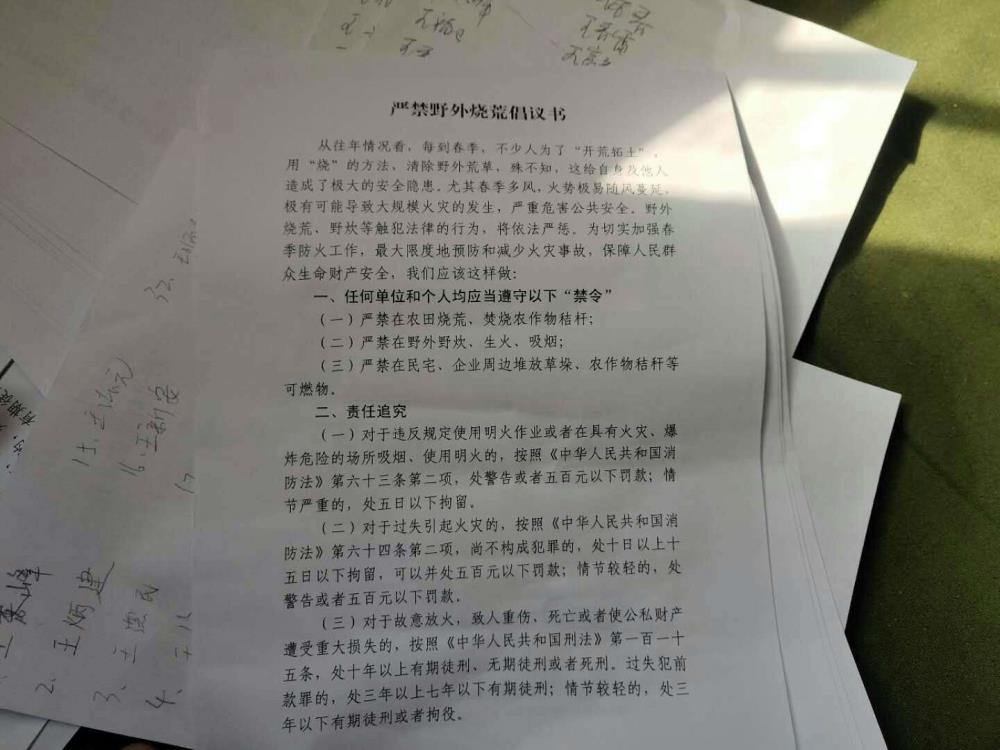 严禁野外烧荒倡议书
从往年情况看，每到春季，不少人为了“开荒拓土”，
用“烧”的方法，清除野外荒草，殊不知，这给自身及他人
造成了极大的安全隐患。尤其春季多风，火势极易随风蔓延，
极有可能导致大规模火灾的发生，严重危害公共安全。野外
烧荒、野炊等触犯法律的行为，将依法严惩。为切实加强春
季防火工作，最大限度地预防和减少火灾事故，保障人民群
众生命财产安全，我们应该这样做：
一、任何单位和个人均应当遵守以下“禁令”
（一）严禁在农田烧荒、焚烧农作物秸秆；
（二）严禁在野外野炊、生火、吸烟；
（三）严禁在民宅、企业周边堆放草垛、农作物秸秆等
可燃物。
二、责任追究
（一）对于违反规定使用明火作业或者在具有火灾、爆
炸危险的场所吸烟、使用明火的，按照《中华人民共和国消
防法》第六十三条第二项，处警告或者五百元以下罚款；情
节严重的，处五日以下拘留。
（二）对于过失引起火灾的，按照《中华人民共和国消
防法》第六十四条第二项，尚不构成犯罪的，处十日以上十
五日以下拘留，可以并处五百元以下罚款；情节较轻的，处
警告或者五百元以下罚款。
（三）对于故意放火，致人重伤、死亡或者使公私财产
遭受重大损失的，按照《中华人民共和国刑法》第一百一十
五条，处十年以上有期徒刑、无期徒刑或者死刑。过失犯前
款罪的，处三年以上七年以下有期徒刑；情节较轻的，处三
年以下有期徒刑或者拘役。
有期徒
16、王新安
2、王炳建
3、王德民
4、